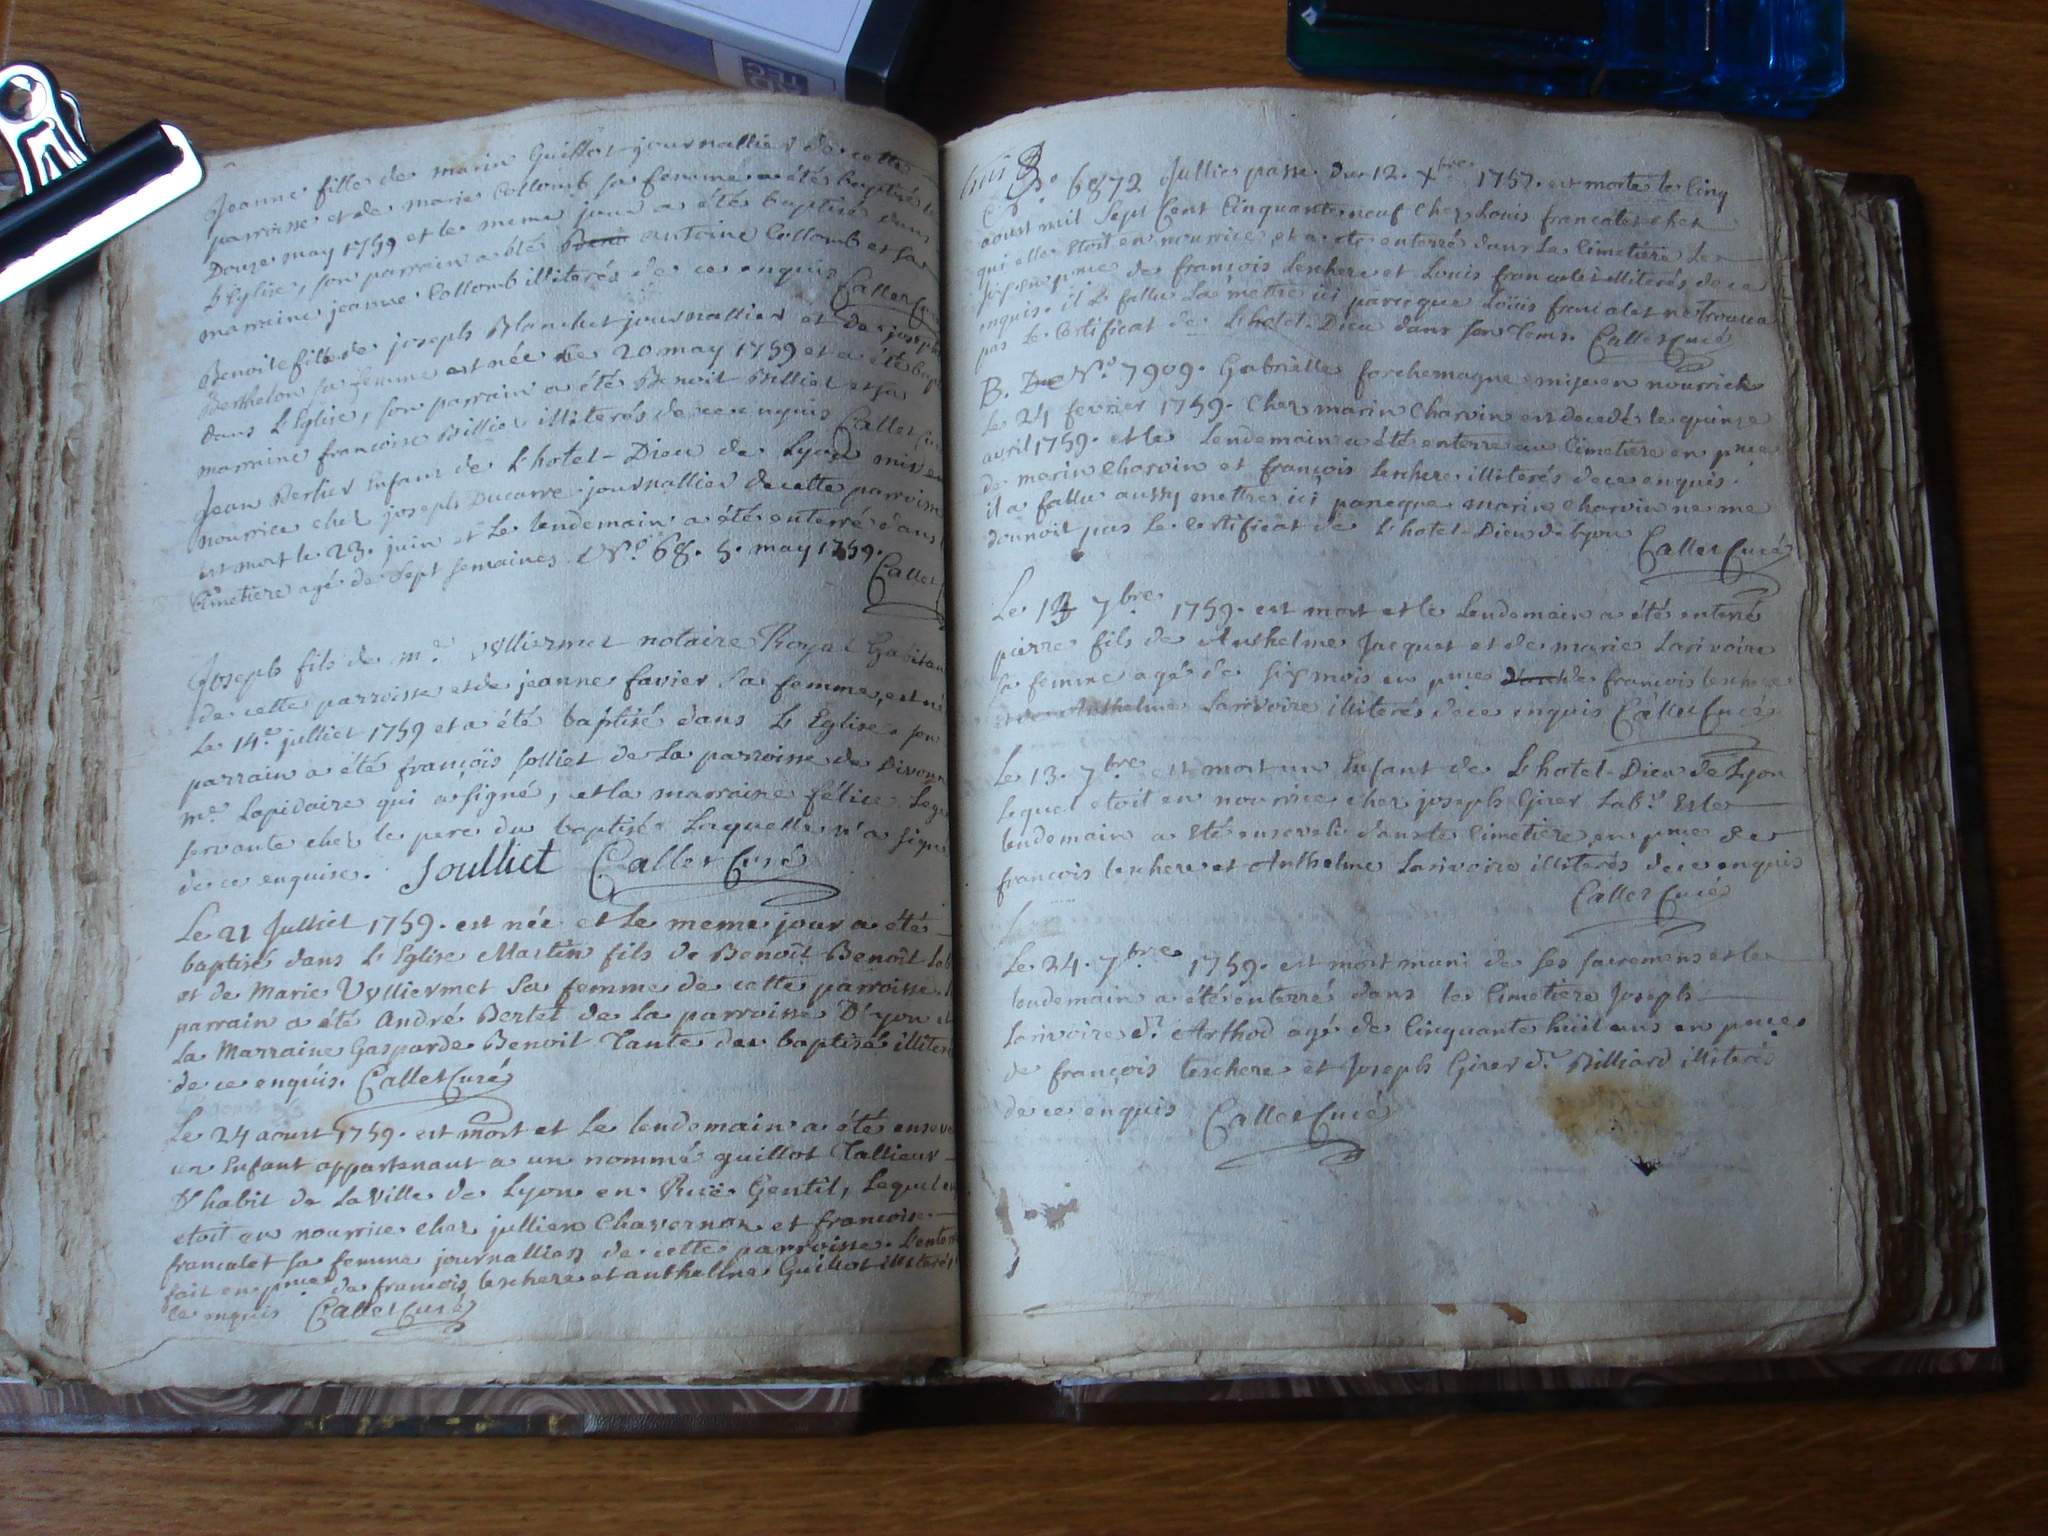 Jeanne fille de marin Guillot journallier de cette
parroisse et de marie Collomb sa femme a étés baptisé le
Douze may 1759 et le meme jour a étés baptisé dans
L'Eglise, son parrain a été antoine Collomb et sa
marraine jeanne Collomb illiterés de ce enquis Callet Curé
Benoite fille de joseph Blanchet journallier et de joseph
Berthelon sa femme est née le 20 may 1759 et a été bapt
dans L'Eglise, son parrain a été Benoit Billiet et sa
marraine francoise Billiet illiterés de ce enquis Callet Cu
Jean Berlier Enfant de L'hotel-Dieu de Lyon mis en
nourrice chez joseph Ducarre journallier de cette parroisse
est mort le 23. juin et Le lendemain a été enterré dans
Cimetiere agé de Sept semaines. N.o 68. 5. may 1759.
Callet
Joseph fils de m.e Vulliermet notaire Royal habitan
de cette parroisse et de jeanne favier sa femme, est né
Le 14.e julliet 1759 et a été baptisé dans L'Eglise. son
parrain a été françois Solliet de La parroisse de Divonn
m.e Lapidaire qui a signé, et la marraine félice
servante chez le pere du baptisé Laquelle n'a signé
de ce enquise. Soulliet Callet Curé
Le 21 Julliet 1759. est née et Le meme jour a été
baptisé dans L'Eglise Martin fils de Benoît Benoît lab
et de Marie Vulliermet sa femme de cette parroisse. L
parrain a été André Bertet de La parroisse D'yon et
La Marraine Gasparde Benoit Tante du baptisé illiter
de ce enquis. Callet Curé
Le 24 aoust 1759. est mort et Le lendemain a été enseve
un Enfant appartenant a un nommé guillot Tallieur
D'habit de La Ville de Lyon en Rüe Gentil, Lequel
etoit en nourrice chez jullien Chavernon et francoise
francalet sa femme journalliers de cette parroisse. L'ente
fait en pnce de francois leschere et anthelme Guillot illiterés
ce enquis Callet Curé
6872 Jullie passe. Du 12. Xbre 1757. est morte le Cinq
aoust mil Sept Cent Cinquante neuf chez Louis francalet chez
qui elle etoit en nourrice et a ete enterré dans Le Cimetiere Le
six en pnce de françois Leschere et Louis francalet illiterés de ce
enquis. il a fallu La mettre ici parceque Louis francalet ne trouva
pas Le Certificat de L'hotel-Dieu dans son Tems. Callet Curé
B. N.o 7909. Gabrielle forchemagne mise en nourrice
Le 24 fevrier 1759. chez marin Charvin est decedés le quinze
avril 1759. et le lendemain a été enterre au Cimetiere en pnce
de marin Charvin et françois leschere illiterés de ce enquis.
il a fallu aussy mettre ici parceque marin Charvin ne me
donnoit pas Le certificat de L'hotel-Dieu de Lyon Callet Curé
Le 13 7bre 1759. est mort et le Lendemain a été enterré
pierre fils de Anthelme Jacquet et de marie Larivoire
sa femme agé de six mois en pnce de francois leschere
et de Anthelme Larivoire illiterés de ce enquis Callet Curé
Le 13. 7bre est mort un Enfant de L'hotel-Dieu de Lyon
Lequel etoit en nourrice chez joseph Girer Lab.r Et Le
lendemain a été enseveli dans le Cimetiere en pnce de
francois leschere et Anthelme Larivoire illiterés de ce enquis
Callet Curé
Le 24. 7bre 1759. est mort muni de ses sacremens et le
lendemain a été enterré dans le Cimetiere Joseph
Larivoire d.t Arthod agé de Cinquante hüit ans en pnce
de françois leschere et Joseph Girer d.t Billiard illiterés
de ce enquis Callet Curé